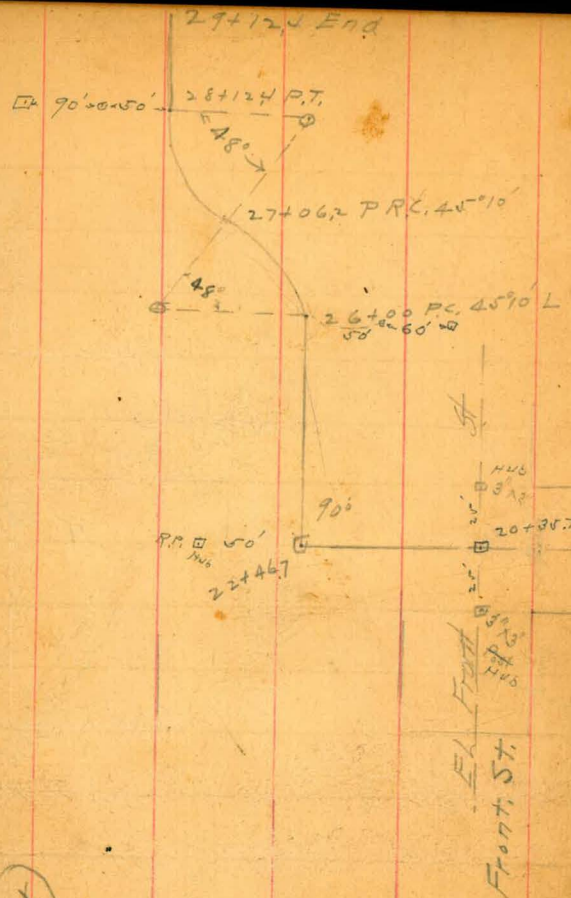 29+12.4 End
90' 50' 28+12.4 P.T.
48°
27+06.2 P.R.C. 45°10'
48°
26+00 P.C. 45°10' L
50' 60'
St
Hub
90°
25'
20+35.7
R.P. 50'
Hub
22+46.7
25'
3" x 3"
Hub
EL Front
Front. St.